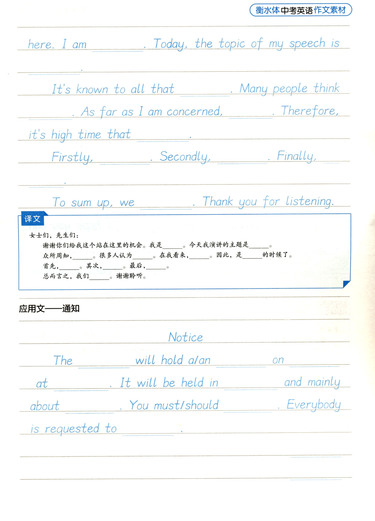 衡水体 中考英语 作文素材
here. I am ________. Today, the topic of my speech is
________.
It's known to all that ________. Many people think
________. As far as I am concerned, ________. Therefore,
it's high time that ________.
Firstly, ________. Secondly, ________. Finally,
________.
To sum up, we ________. Thank you for listening.
译文
女士们，先生们：
谢谢你们给我这个站在这里的机会。我是______。今天我演讲的主题是______。
众所周知，______。很多人认为______。在我看来，______。因此，是______的时候了。
首先，______。其次，______。最后，______。
总而言之，我们______。谢谢聆听。
应用文——通知
Notice
The ________ will hold a/an ________ on ________
at ________. It will be held in ________ and mainly
about ________. You must/should ________. Everybody
is requested to ________.